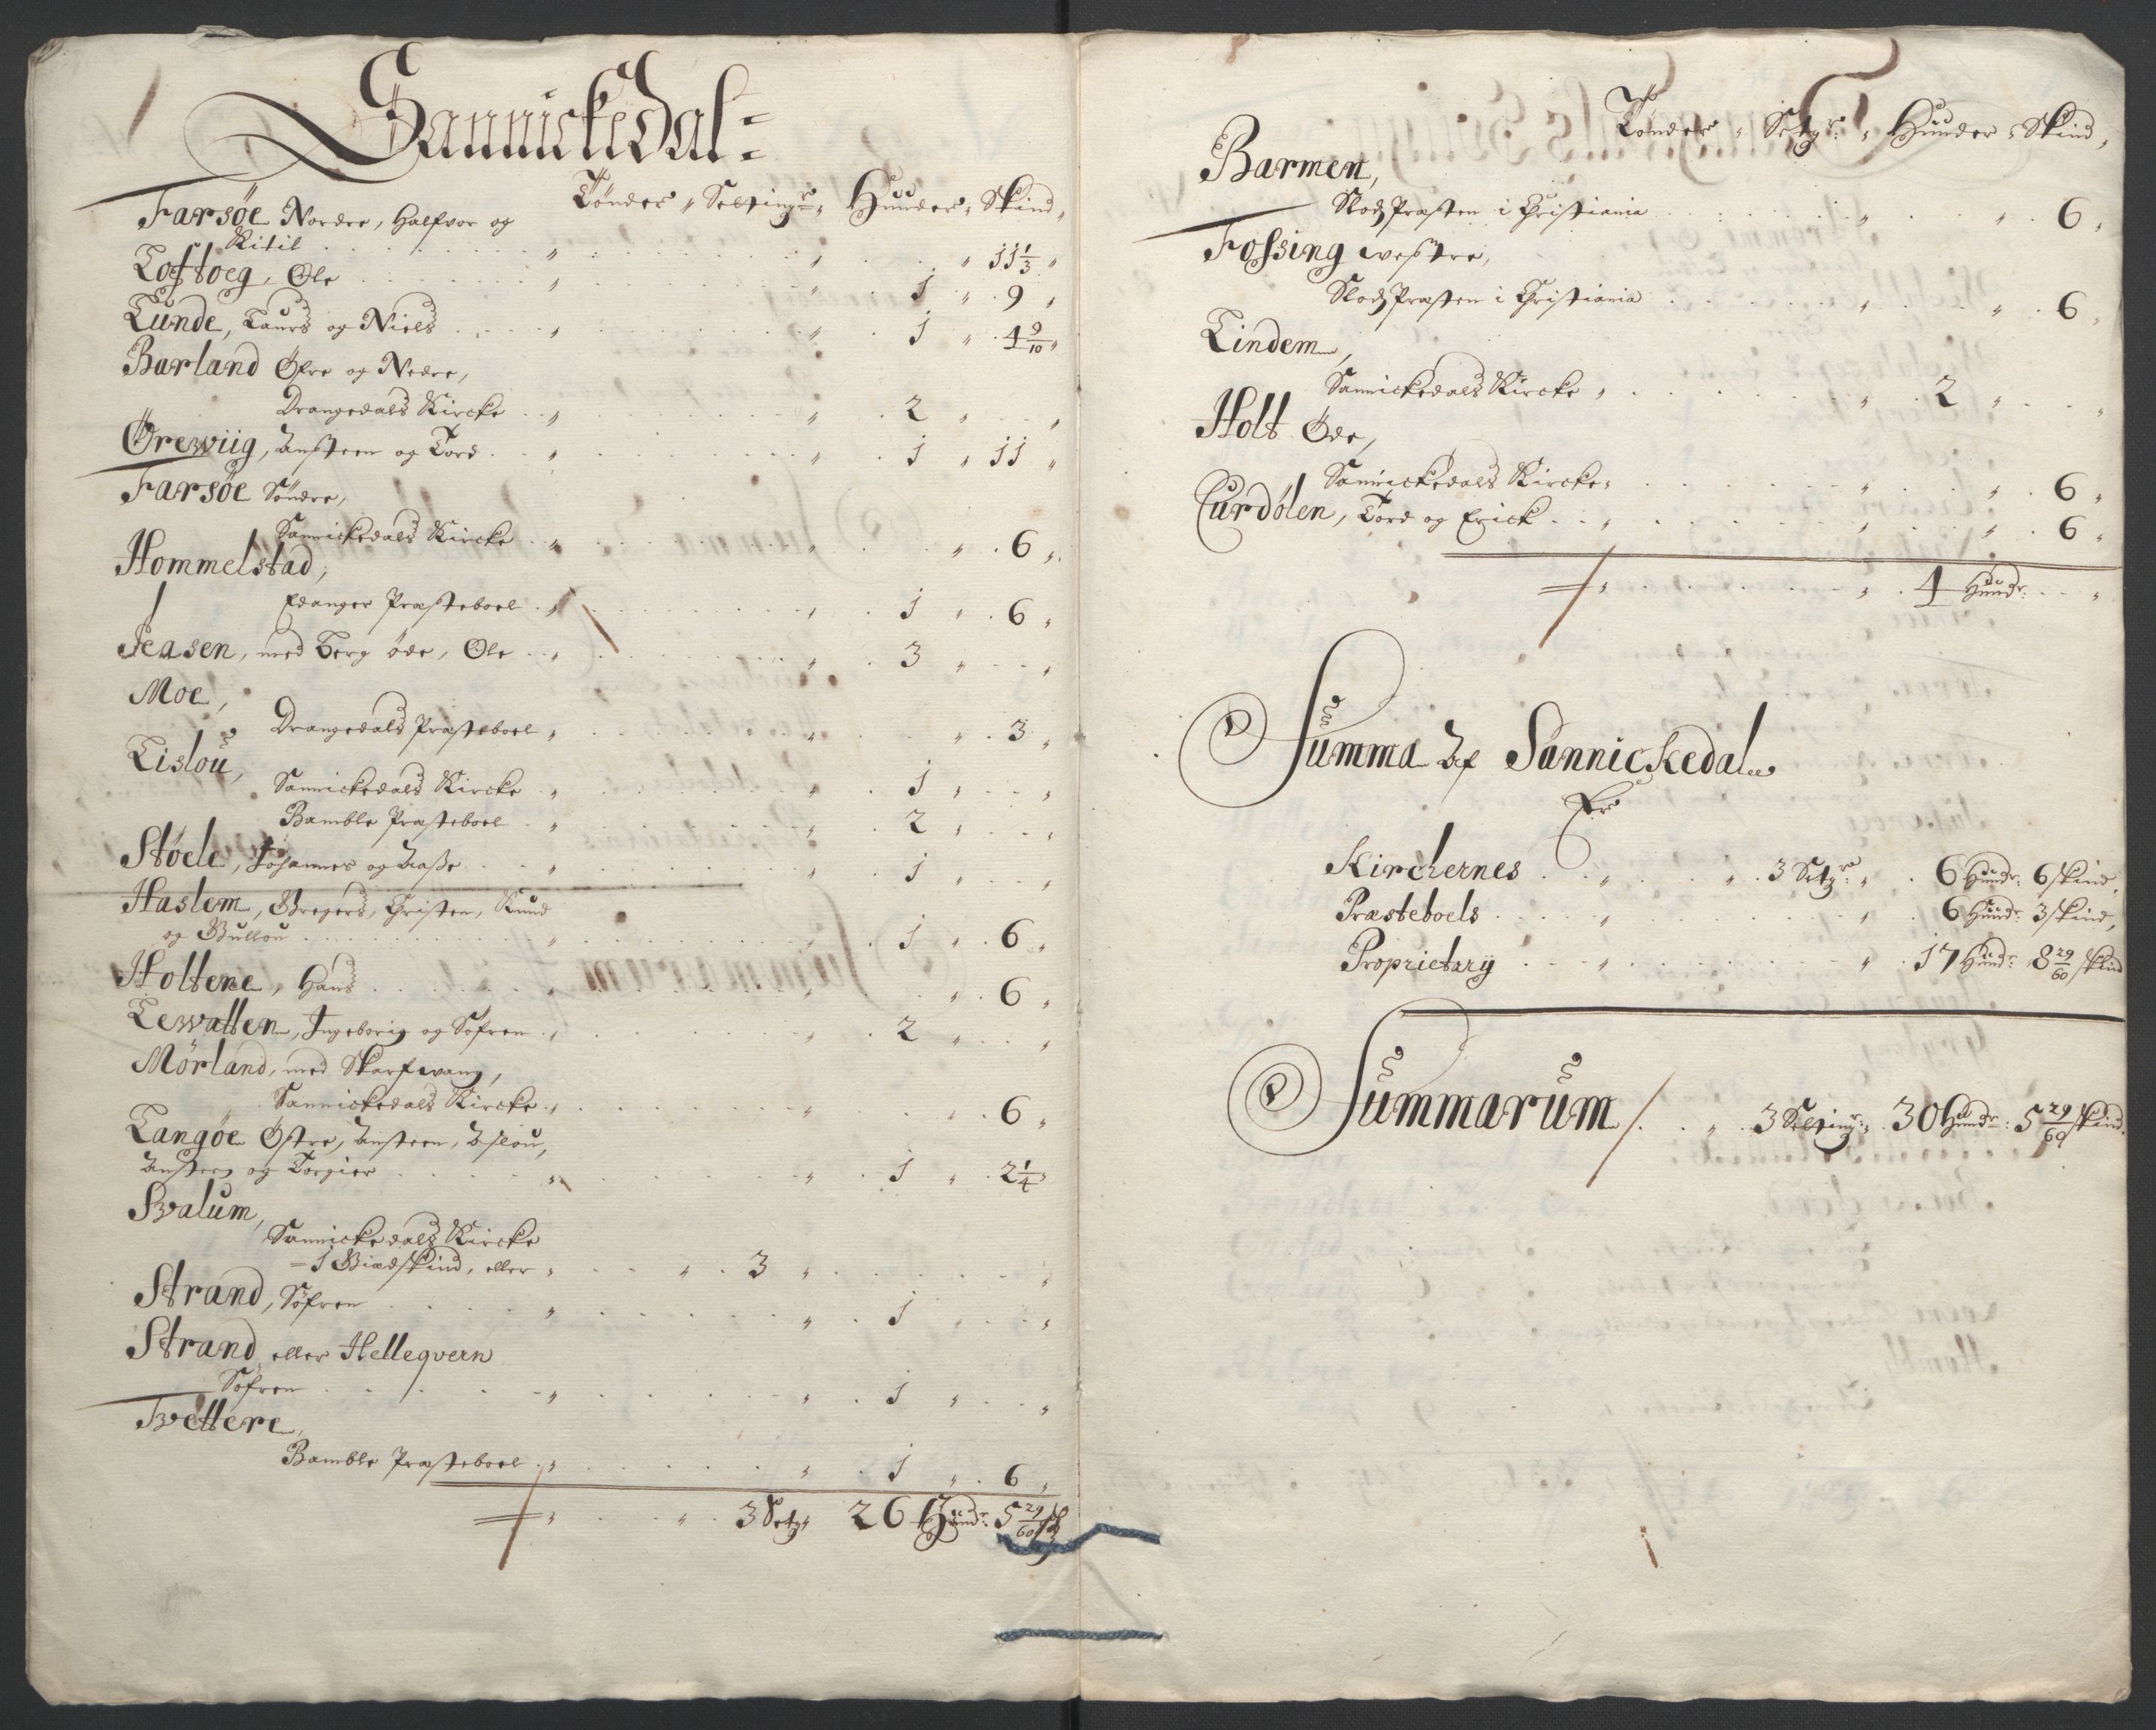 Sannickedal
Tønder, Setting:r, Hunder, Skind,
Farsøe Nordre, Halfvor og
Kitil " " " 11 1/3 "
Loftoeg, Ole " " 1 " 9 "
Lunde, Laurs og Niels " " 1 " 4 9/10 "
Barland Øfre og Nedre,
Drangedals Kircke " " 2 " "
Ørewiig, Ansteen og Tord " " 1 " 11 "
Farsöe Söndre,
Sannickedals Kircke " " " 6 "
Hommelstad,
Edanger Præsteboel " " 1 " 6 "
Jeasen, med Berg øde, Ole " " 3 " "
Moe,
Drangedals Præsteboel " " " 3 "
Lislou,
Sannickedals Kircke " " 1 " "
Bamble Præsteboel " " 2 " "
Støele, Johannes og Aaße " " 1 " "
Haslem, Gregers, Christen, Knud
og Gullou " " 1 " 6 "
Holtene, Hans " " " 6 "
Lewatten, Ingeborig og Sofren " " 2 " "
Mörland, med Skarfwang,
Sannickedals Kircke " " " 6 "
Langøe Østre, Ansteen, Aslou,
Ansteen og Torgier " " 1 " 2 1/4 "
Svalum,
Sannickedals Kircke
= 1 Giedskind, eller " " 3 " "
Strand, Söfren " " 1 " "
Strand, eller Helleqvern
Söfren " " 1 " "
Tvettere,
Bamble Præsteboel " " 1 " 6 "
" " 3 Setg:r 26 Hund:r 5 29/60 sk
Tønder, Setg:r, Hunder, Skind,
Barmen,
Slodz Præsten i Christiania " " 6 "
Fossing westre,
Slodz Præsten i Christiania " " 6 "
Lindem,
Sannickedals Kircke " " 2 " "
Holt Øde,
Sannickedals Kircke " " 6 "
Curdölen, Tord og Erick " " " 6 "
" " 4 Hund:r "
Summa Af Sannickedal
Er
Kirchernes " " 3 Setg:r " 6 Hund:r 6 skind,
Præsteboels " " 6 Hund:r 3 skind,
Proprietarij " " 17 Hund:r 8 29/60 skind
Summarum " 3 Setting:r 30 Hund:r: 5 29/60 skind